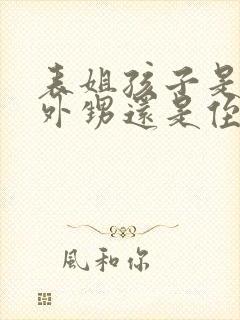 表姐孩子是
外甥還是侄
風和你